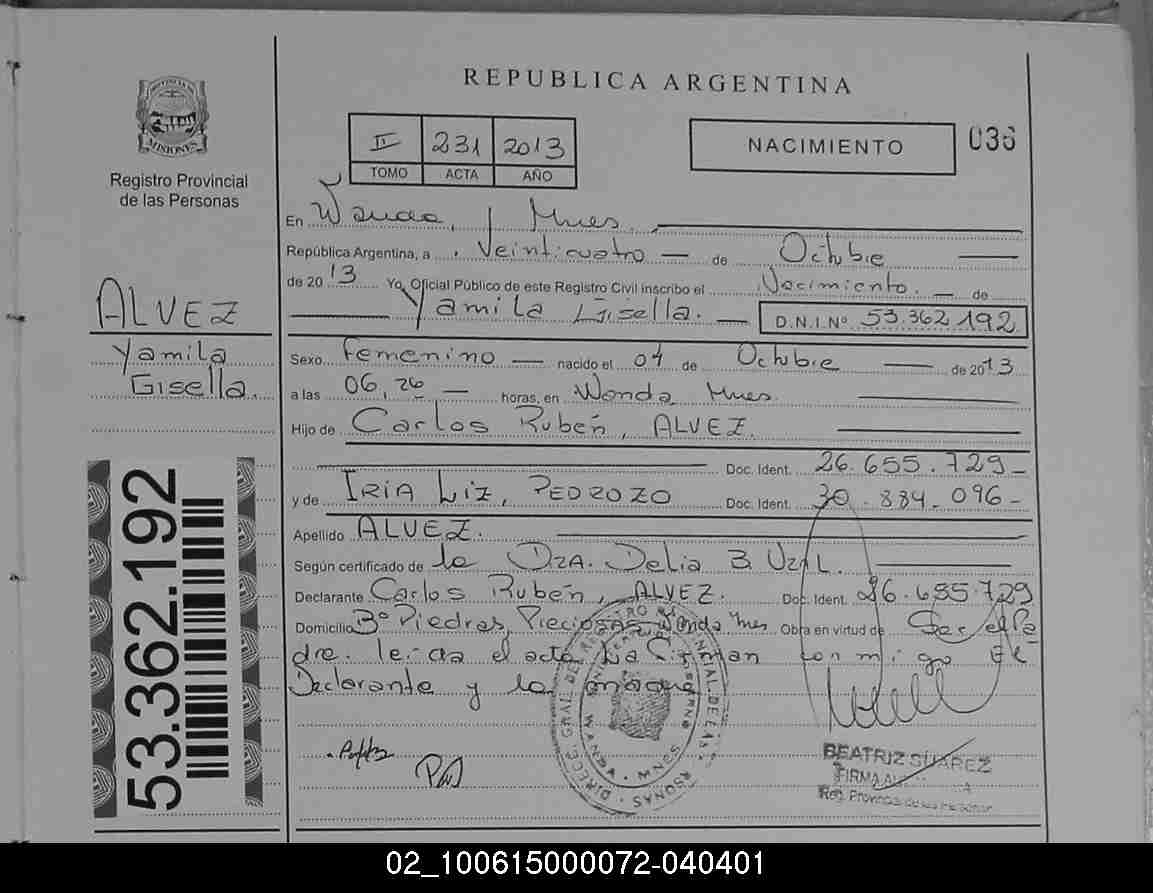 REPUBLICA ARGENTINA
PROVINCIA DE
MISIONES
Registro Provincial
de las Personas
II 231 2013
TOMO ACTA AÑO
NACIMIENTO
036
En Wanda, Mnes.
República Argentina, a Veinticuatro de Octubre
de 2013 Yo, Oficial Público de este Registro Civil inscribo el Nacimiento. de
Yamila Gisella. D.N.I.Nº 53.362.192
ALVEZ
Yamila
Gisella.
Sexo Femenino nacido el 04 de Octubre de 2013
a las 06,26 horas, en Wanda Mnes.
Hijo de Carlos Rubén, ALVEZ.
Doc. Ident. 26.655.729
y de IRIA LIZ, PEDROZO Doc. Ident. 30.884.096
Apellido ALVEZ.
Según certificado de la DRA. Delia B. UZAL.
Declarante Carlos Rubén, ALVEZ. Doc. Ident. 26.655.729
Domicilio Bº Piedras Preciosas Wanda Mnes Obra en virtud de Ser el Pa
dre. leída el acta La Firman conmigo El
Declarante y la madre
53.362.192
BEATRIZ SUAREZ
FIRMA
Reg. Provincial de las Personas
02_100615000072-040401